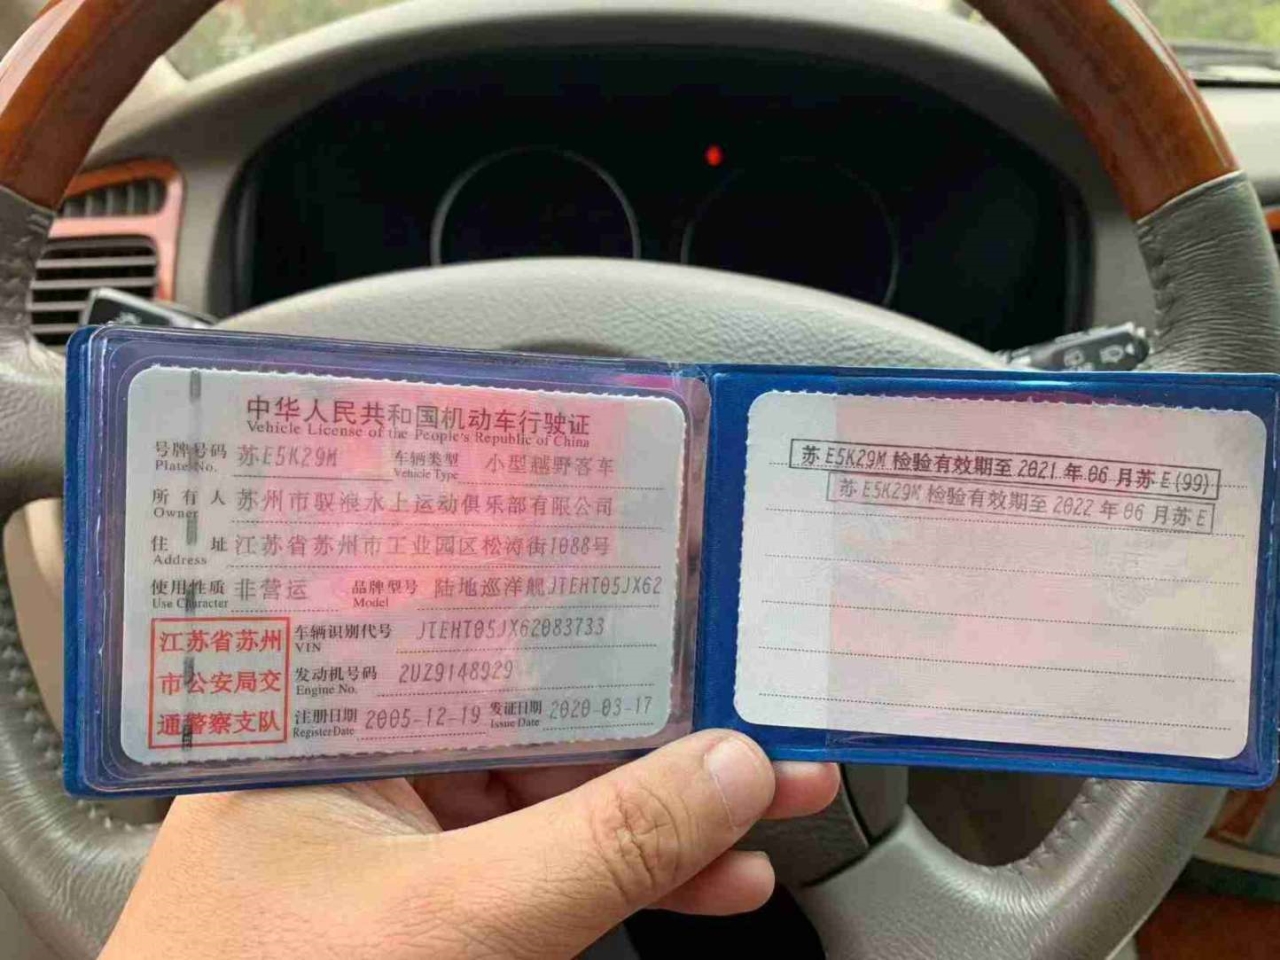 中华人民共和国机动车行驶证
Vehicle License of the People's Republic of China
号牌号码 苏E5K29M 车辆类型 小型越野客车
Plate No. Vehicle Type
所有人 苏州市驭浪水上运动俱乐部有限公司
Owner
住址 江苏省苏州市工业园区松涛街1088号
Address
使用性质 非营运 品牌型号 陆地巡洋舰JTEHT05JX62
Use Character Model
江苏省苏州
市公安局交
通警察支队
车辆识别代号 JTEHT05JX62083733
VIN
发动机号码 2UZ9148929
Engine No.
注册日期 2005-12-19 发证日期 2020-03-17
Register Date Issue Date
苏E5K29M 检验有效期至 2021 年 06 月苏E(99)
苏E5K29M 检验有效期至 2022 年 06 月苏E